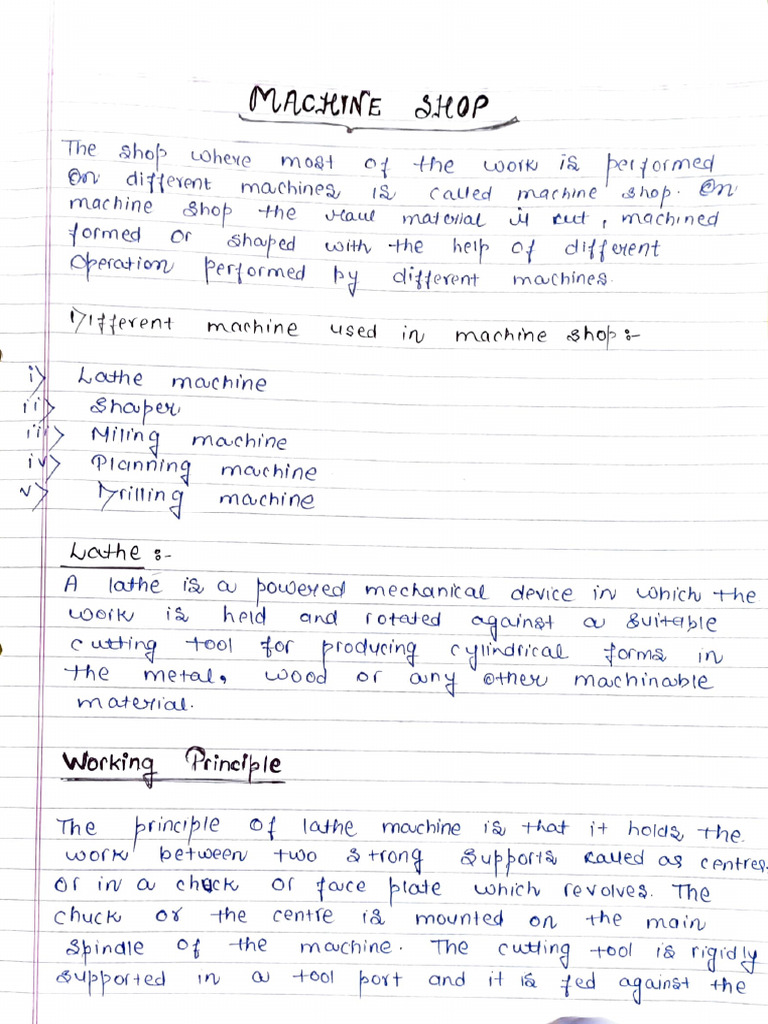 MACHINE SHOP
The shop where most of the work is performed
on different machines is called machine shop. On
machine shop the raw material is cut, machined
formed or shaped with the help of different
operation performed by different machines.
Different machine used in machine shop :-
i) Lathe machine
ii) Shaper
iii) Milling machine
iv) Planning machine
v) Drilling machine
Lathe :-
A lathe is a powered mechanical device in which the
work is held and rotated against a suitable
cutting tool for producing cylindrical forms in
the metal, wood or any other machinable
material.
Working Principle
The principle of lathe machine is that it holds the
work between two strong supports called as centres,
or in a chuck or face plate which revolves. The
chuck or the centre is mounted on the main
spindle of the machine. The cutting tool is rigidly
supported in a tool port and it is fed against the